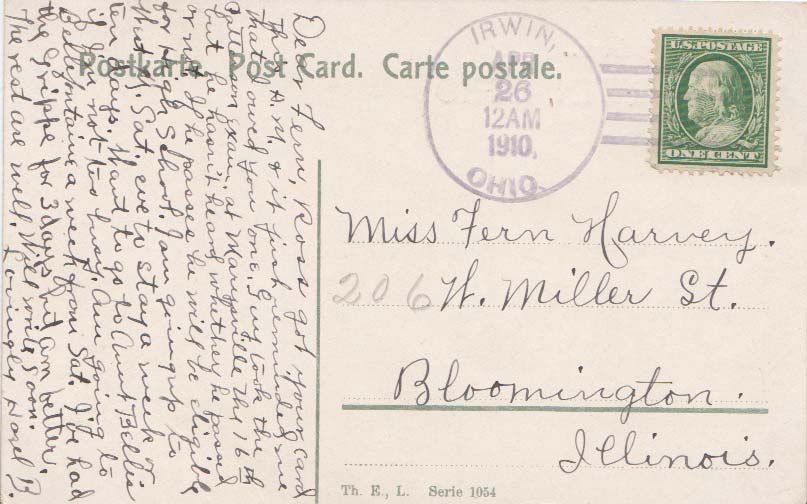 Postkarte. Post Card. Carte postale.
IRWIN,
APR
26
12AM
1910.
OHIO.
U.S. POSTAGE
ONE CENT
Dear Fern, Ross got your card
this A.M. & it just reminded me
that I owed you one. Guy took the
Patterson Exam. at Marysville the 16th
but he hasn't heard whether he passed
or not. If he passes he will be eligible
for High School. I am going up to
Sat. eve to stay a week or
ten days. Want to go to Aunt
if I'm not too busy. Am going to
Bellefontaine a week from Sat. I've had
the Grippe for 3 days but am better.
The rest are well. Will write soon.
Lovingly Hazel B
Miss Fern Harvey.
206 W. Miller St.
Bloomington.
Illinois.
Th. E., L. Serie 1054